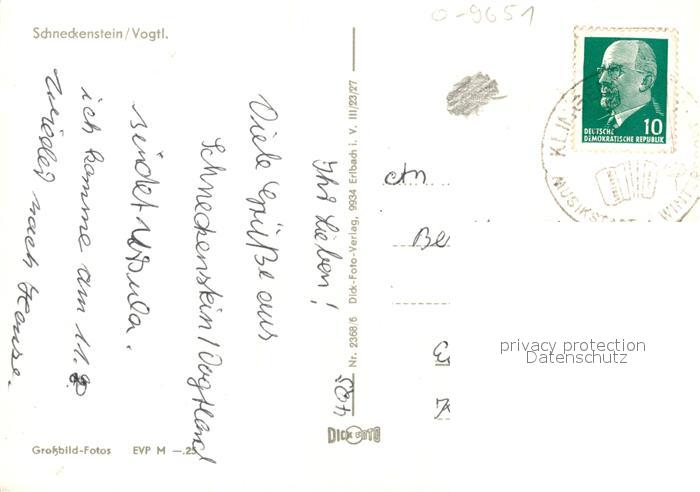 Schneckenstein / Vogtl.
0-9651
DEUTSCHE
DEMOKRATISCHE REPUBLIK
10
KLING
MUSIKSTADT WINT
Ihr Lieben!
Viele Grüße aus
Schneckenstein/Vogtland
sendet Ursula.
ich komme am 11.
wieder nach Hause.
Nr. 2368/6 Dick-Foto-Verlag, 9934 Erlbach i. V. III/23/27
An
Be
privacy protection
Datenschutz
DICK FOTO
Großbild-Fotos EVP M —.25